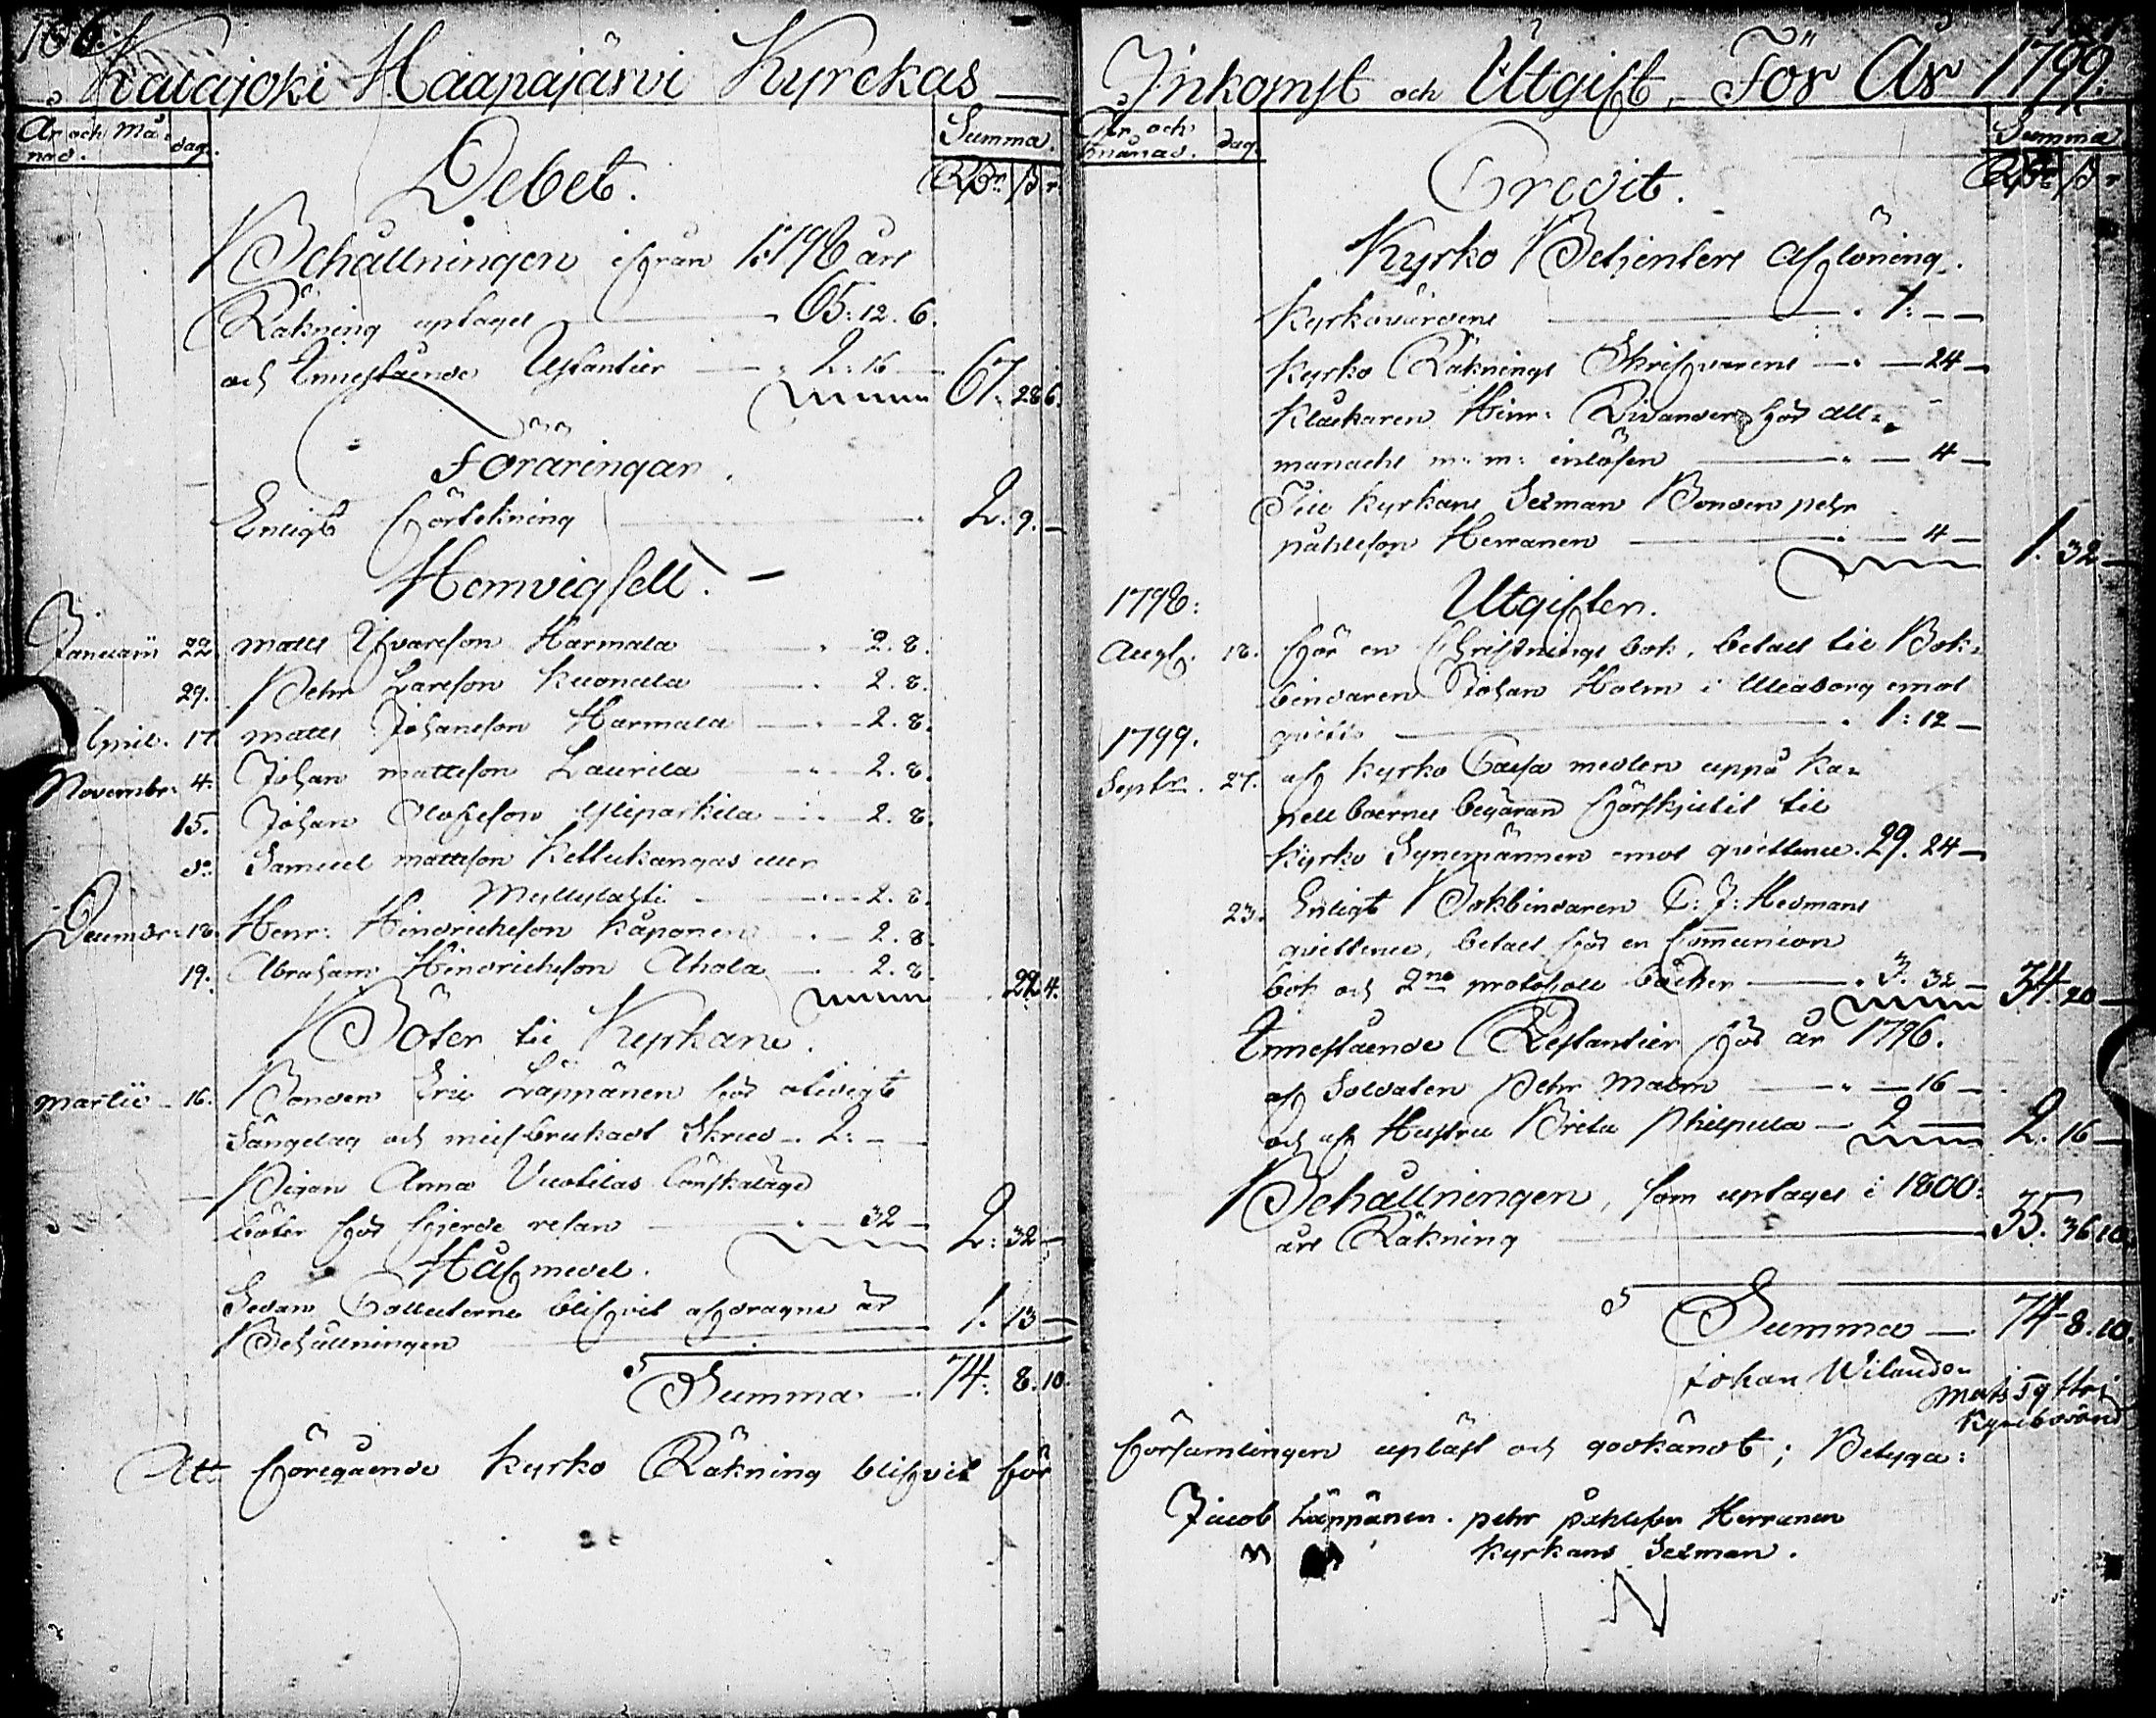 Calajoki Haapajärvi Kyrckas
År och Må-
nad.
dag.
Summa.
Debet.
Behållningen ifrån 1:1798 års
Räkning uptages 65:12.6.
och Innestående Restantier 2:16
67. 28 6.
Föräringar.
Enligt Förtekning 2. 9. —
Hemvigsell. —
Januarii 22. Matts Ifvarsson Harmala 2. 8.
29. Pehr Larsson Kuonala 2. 8.
April. 17. Matts Johansson Harmala 2. 8.
Novembr: 4. Johan Mattsson Laurila 2. 8.
15. Johan Olofsson Yliparkila 2. 8.
do Samuel Mattsson Kettukangas eller
Myllylahti 2. 8.
Decembr: 18. Henr: Hindrichsson Kaponen 2. 8.
19. Abraham Hindrichsson Ahola 2. 8.
22 4.
Böter til Kyrkan.
Martii 16. Bonden Eric Läppänen för olidigt
Sängelag och missbrukadt Skrud 2: —
Pigan Anna Vuotilas Lönskaläge
böter för fjerde resan 32 —
2: 32 —
Håfmedel.
Sedan Collecterne blifvit afdragne är
Behållningen 1. 13 —
Summa 74: 8. 10
Att föregående Kyrko Räkning blifvit för
Inkomst och Utgift, För År 1799.
År och
månad.
dag.
Summa
Credit.
Kyrko Betjenters Aflöning.
Kyrkovärdens 1: — —
Kyrko Räknings Skrifvarens 24 —
Klåckaren Henr: Rivander för all-
manachs m: m: inlösen 4 —
Till Kyrkans Sexman Bonden Pehr
Påhlsson Herranen 4 —
1. 32 —
1798:
Utgiften.
Aug. 18. För en Skriftnings bok, betalt til Bok-
bindaren Johan Holm i Uleaborg emot
1799. qvitto 1: 12 —
Septr. 27. af Kyrko Cassa medlen uppå Ka-
pell boernes begäran Förskjutit til
Kyrko Synemännen emot qvittence. 29. 24 —
23. Enligt Bokbindaren C: J: Hedmans
qvittence, betalt för en Communion
bok och 2ne protokoll böcker 3. 32 —
34. 20 —
Innestående Restantier för år 1796.
af Soldaten Pehr Malm 16 —
och af Hustru Brita Philpula 2 —
2. 16 —
Behållningen, som uptages i 1800:
års Räkning 35. 36 10.
Summa 74 8. 10.
Johan Wilander
Kyrckovärd
Församlingen upläst och godkändt; Betyga:
Jacob Läppänen. Pehr Påhlsson Herranen
Kyrkans Sexman.
N